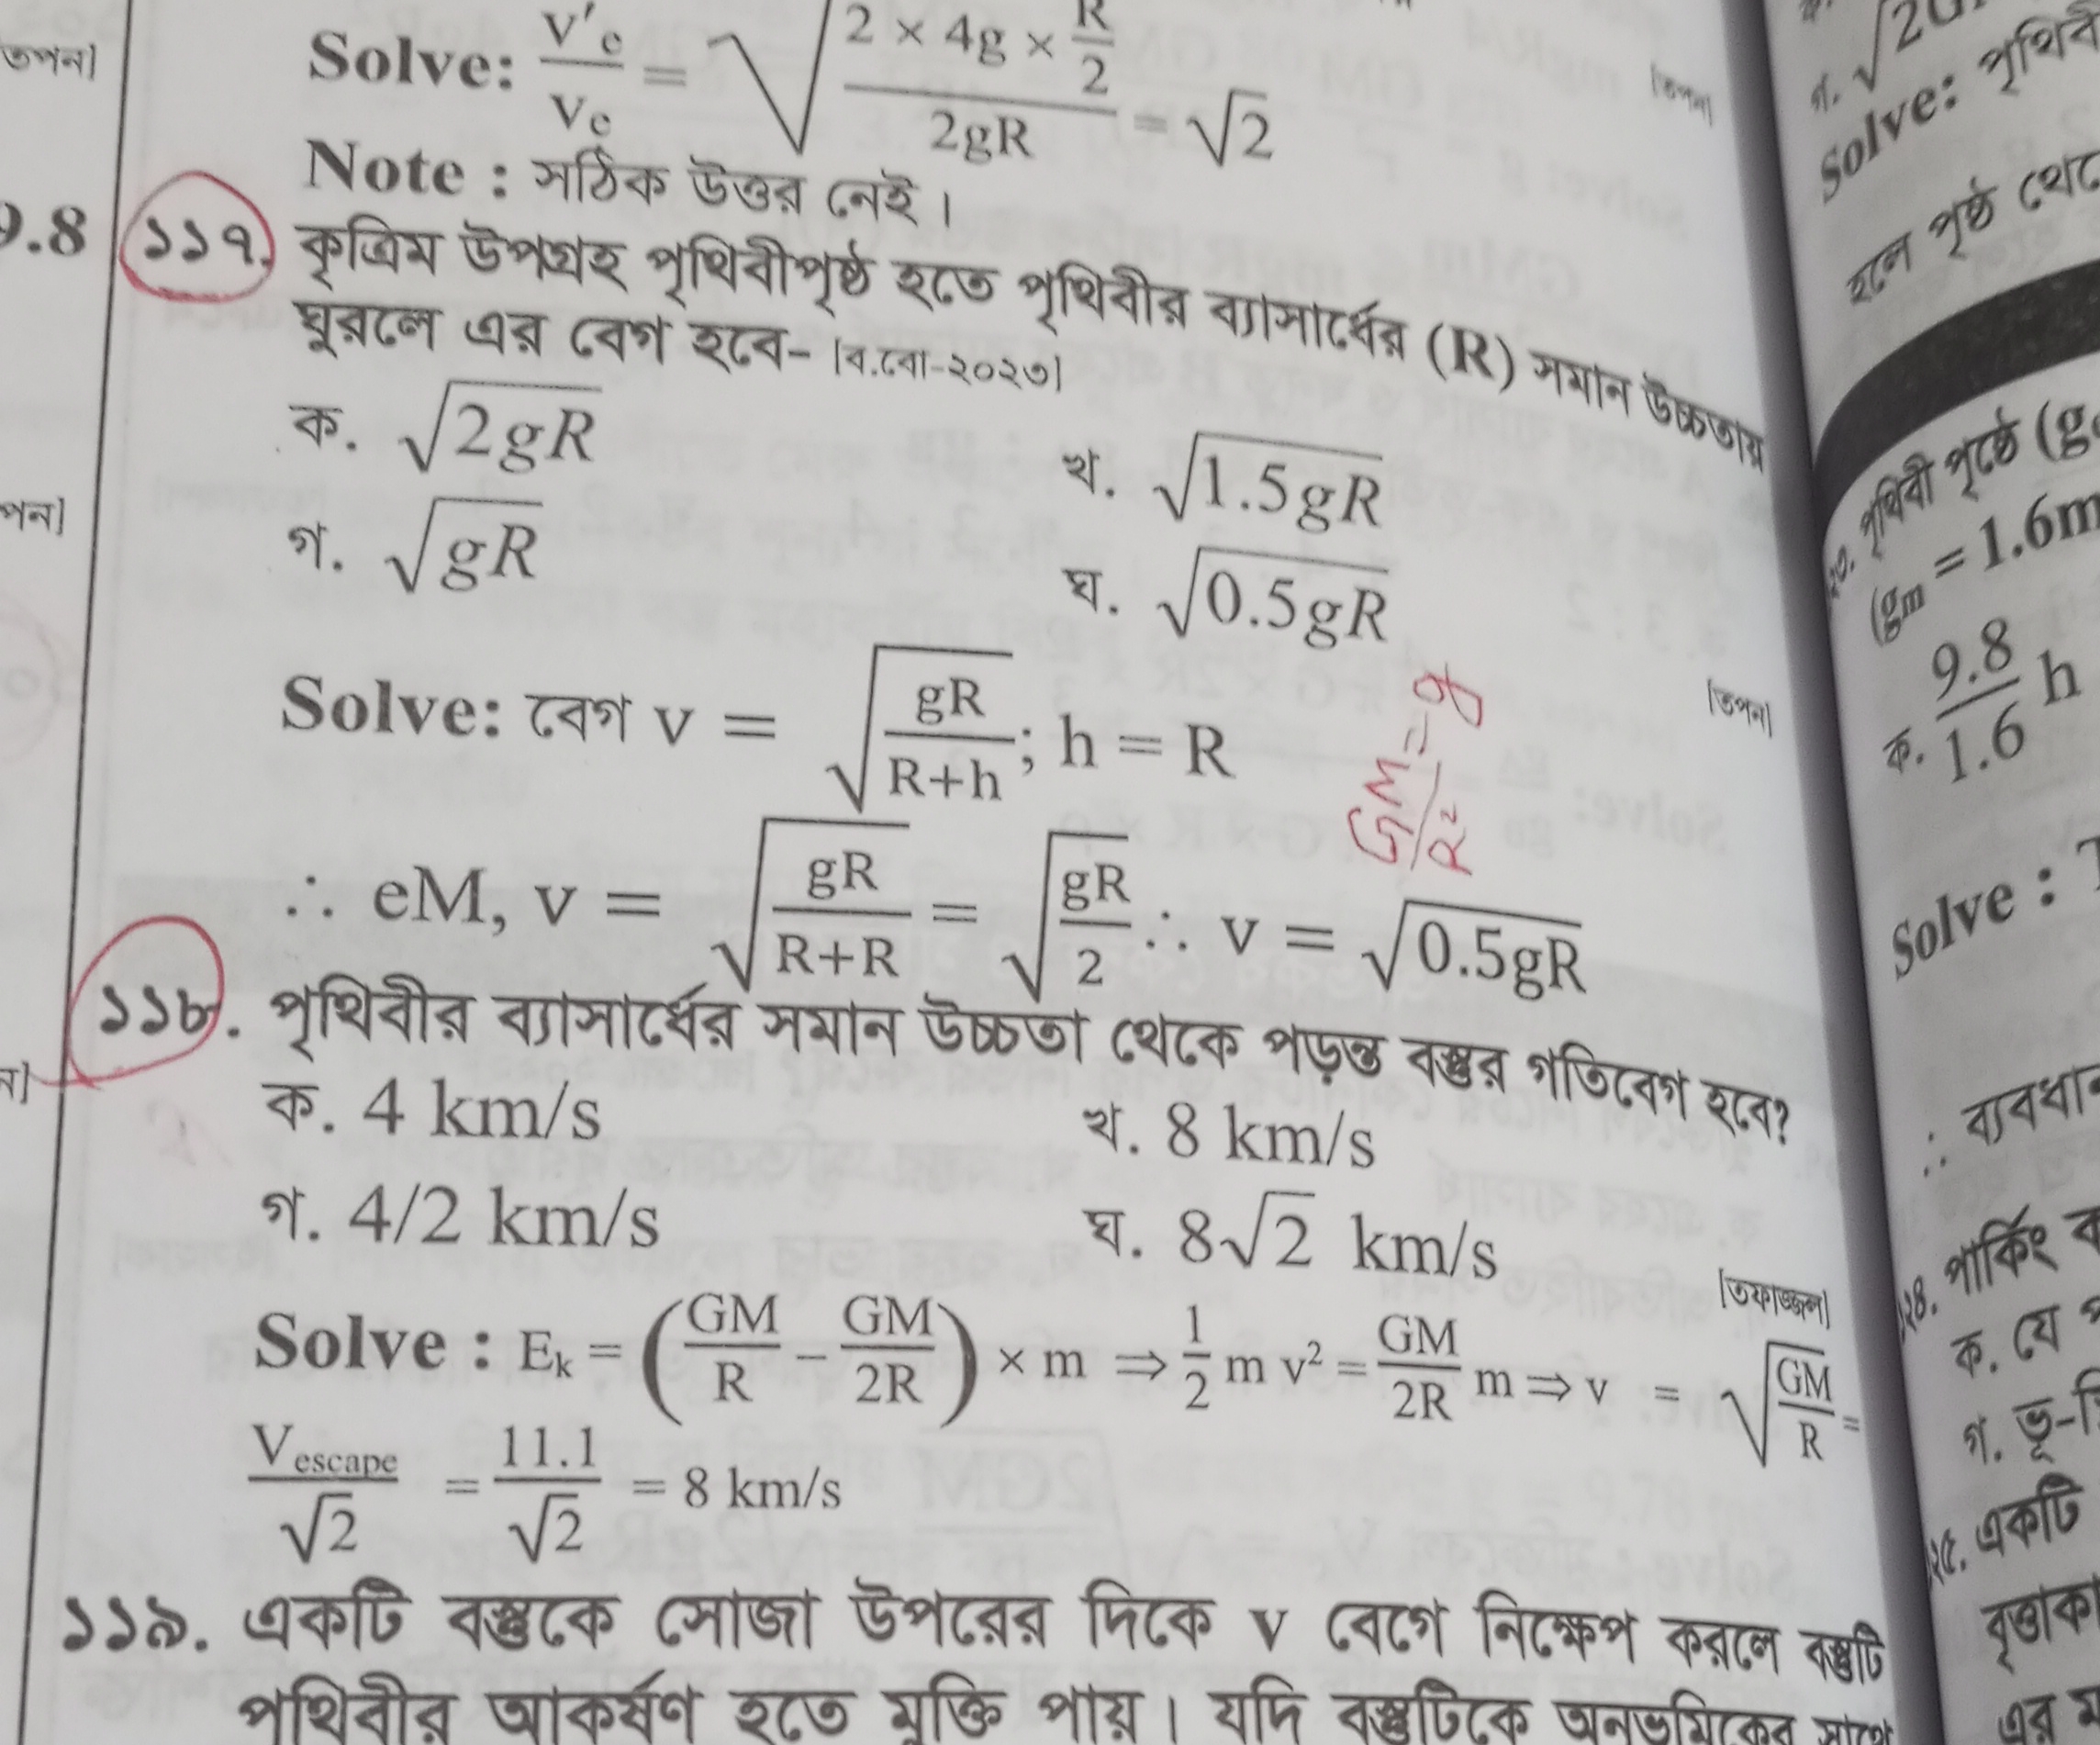 তপন]
Solve: V'e/Ve = √(2 × 4g × R/2 / 2gR) = √2
[তপন]
Note : সঠিক উত্তর নেই।
9.8
১১৭. কৃত্রিম উপগ্রহ পৃথিবীপৃষ্ঠ হতে পৃথিবীর ব্যাসার্ধের (R) সমান উচ্চতায়
ঘুরলে এর বেগ হবে- [ব.বো-২০২৩]
ক. √2gR
খ. √1.5gR
পন]
গ. √gR
ঘ. √0.5gR
[তপন]
Solve: বেগ v = √(gR/R+h); h = R
GM/R² = g
∴ eM, v = √(gR/R+R) = √(gR/2) ∴ v = √0.5gR
১১৮. পৃথিবীর ব্যাসার্ধের সমান উচ্চতা থেকে পড়ন্ত বস্তুর গতিবেগ হবে?
ন]
ক. 4 km/s
খ. 8 km/s
গ. 4/2 km/s
ঘ. 8√2 km/s
[তফাজ্জল]
Solve : Eₖ = (GM/R − GM/2R) × m ⇒ 1/2 m v² = GM/2R m ⇒ v = √(GM/R) =
Vescape/√2 = 11.1/√2 = 8 km/s
১১৯. একটি বস্তুকে সোজা উপরের দিকে v বেগে নিক্ষেপ করলে বস্তুটি
পৃথিবীর আকর্ষণ হতে মুক্তি পায়। যদি বস্তুটিকে অনুভূমিকের সাথে
গ.
Solve: পৃথিবী
হলে পৃষ্ঠ থেকে
পৃথিবী পৃষ্ঠে (g
(gm = 1.6m
ক. 9.8/1.6 h
Solve :
∴ ব্যবধান
পার্কিং
ক. যে
গ. ভূ-স্থি
একটি
বৃত্তাকা
এর